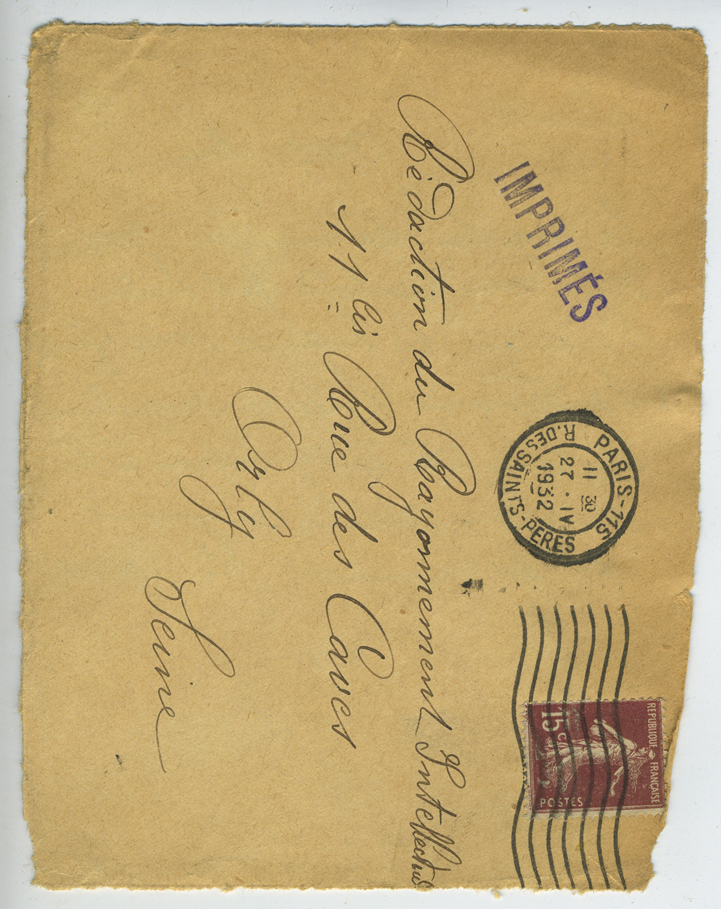 IMPRIMÉS
PARIS-115
R. DES SAINTS-PERES
11 30
27 . IV
1932
REPUBLIQUE FRANÇAISE
15c.
POSTES
Rédaction du Rayonnement Intellectuel
11 bis Rue des Caves
Orly
Seine